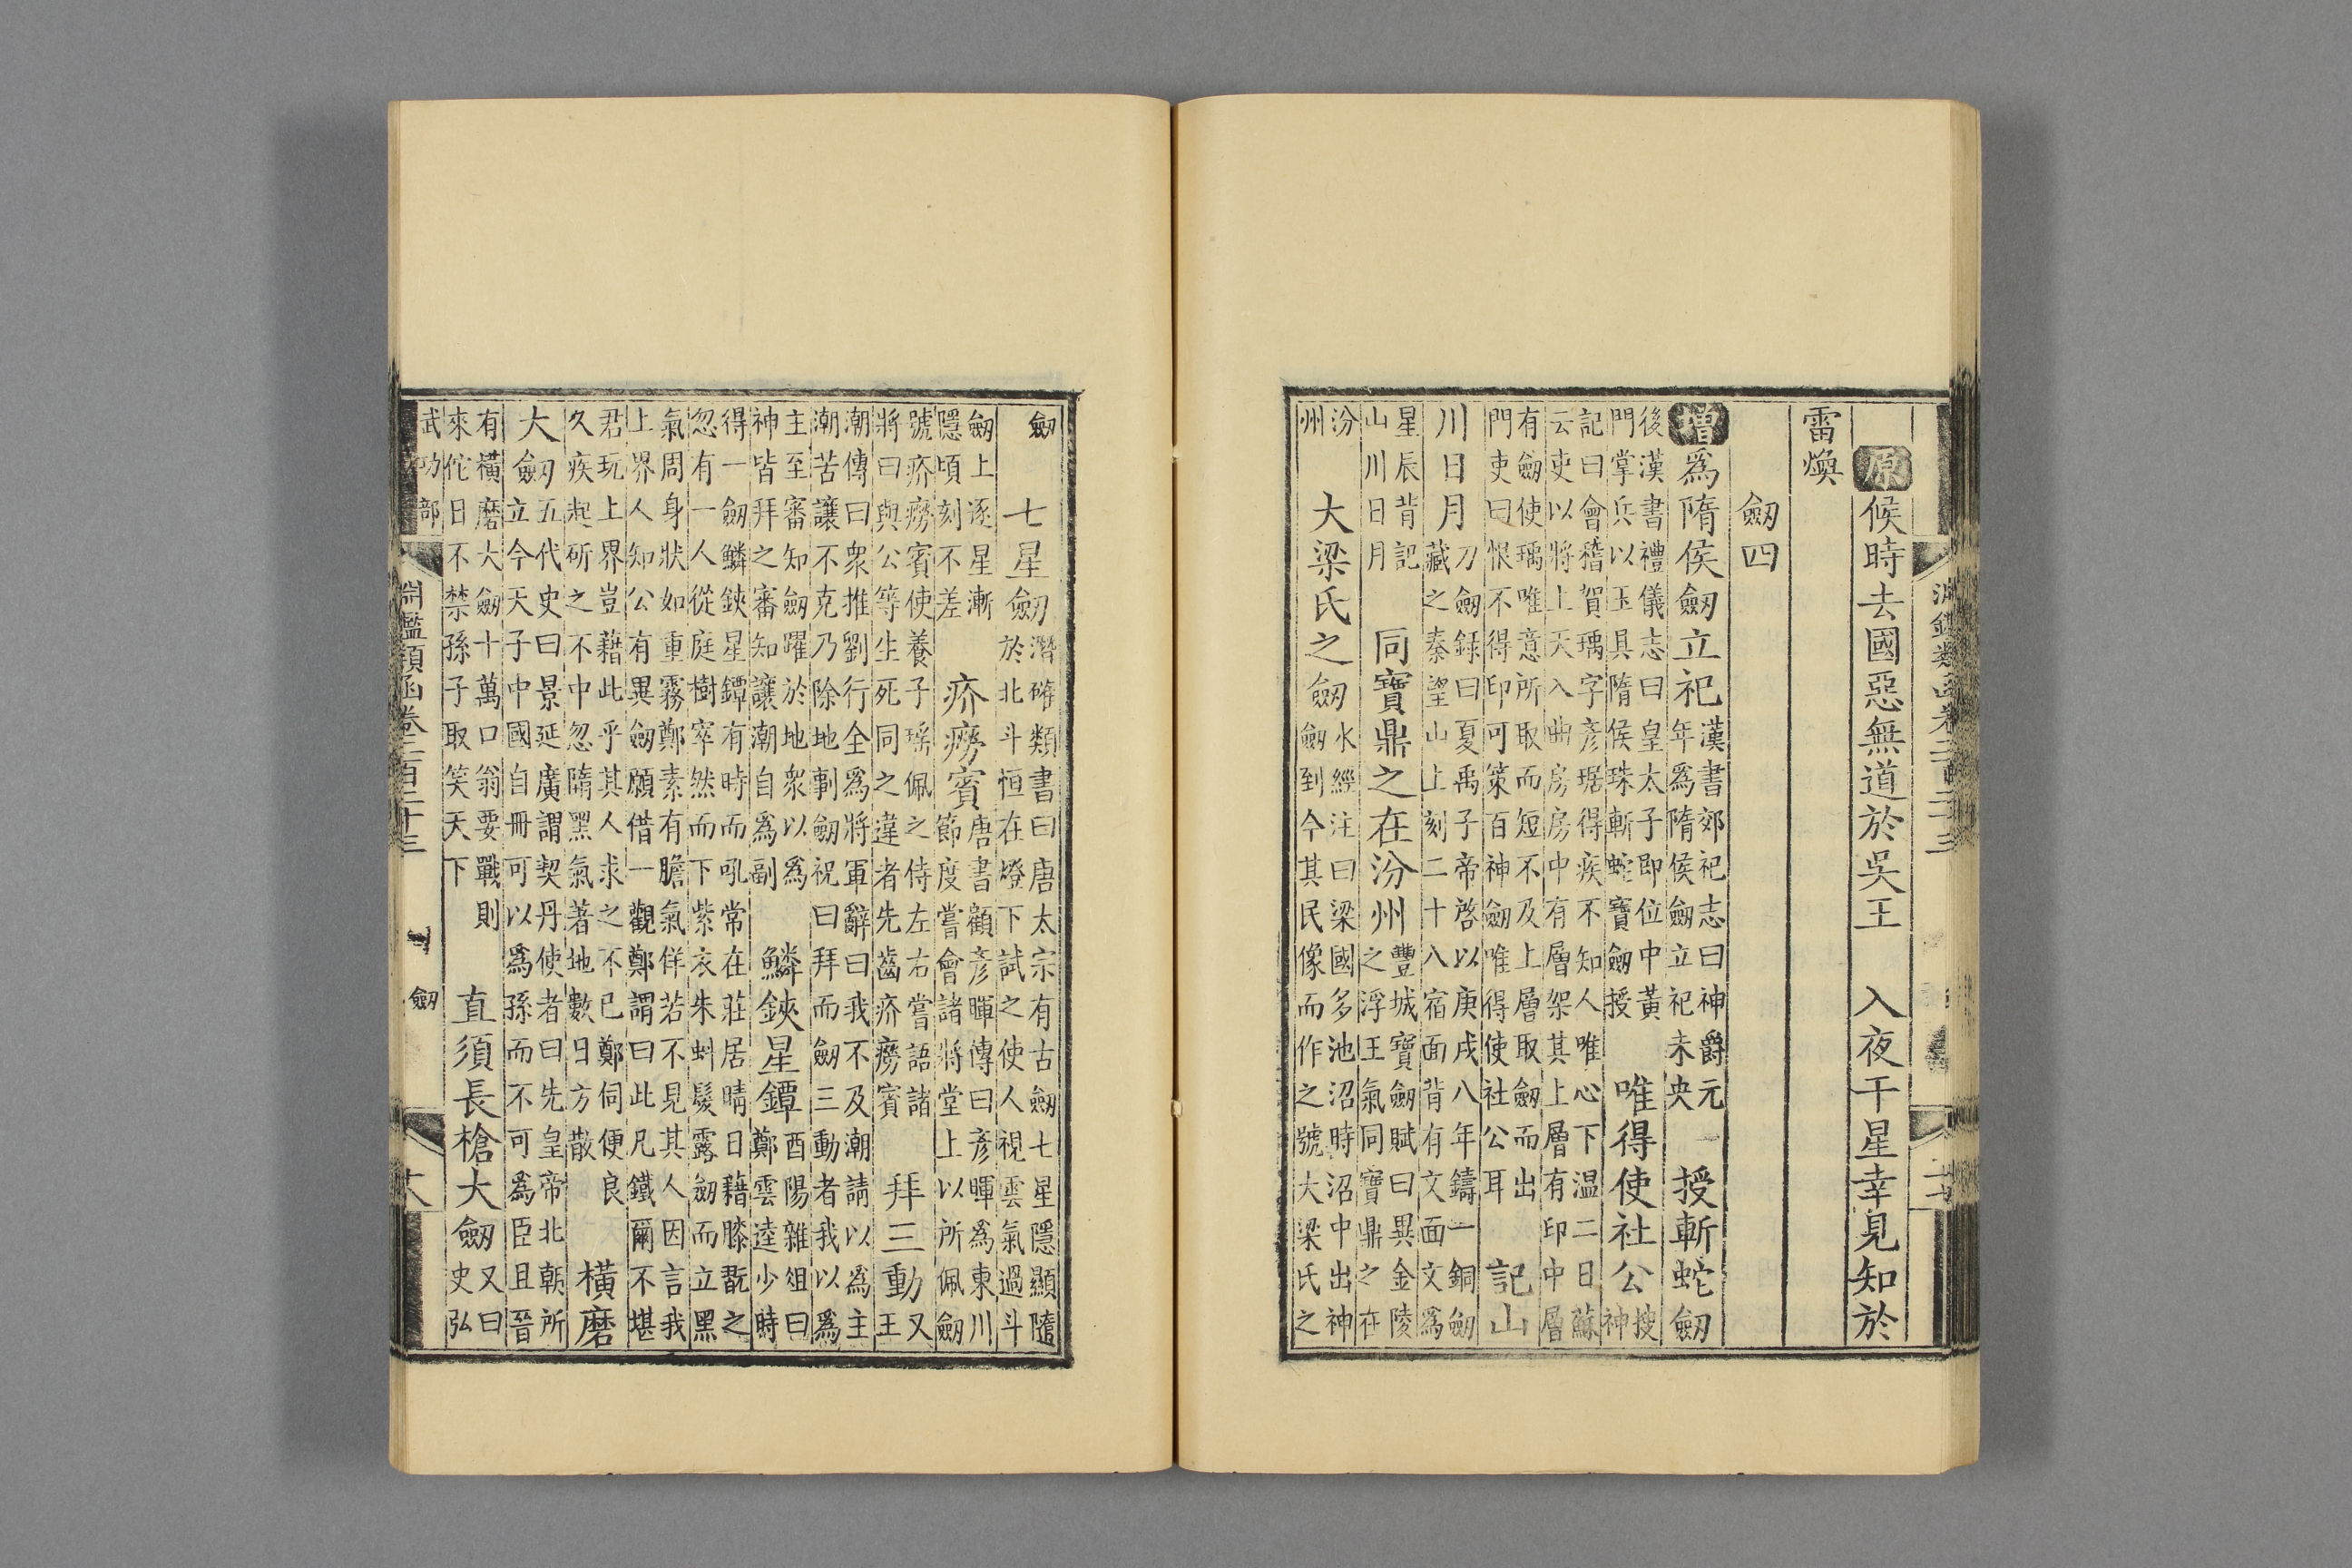 淵鑑類函卷二百二十三
原候時去國惡無道於吳王　入夜干星幸見知於
雷煥
劔四
增爲隋侯劔立祀漢書郊祀志曰神爵元年爲隋侯劔立祀未央　授斬蛇劔
後漢書禮儀志曰皇太子即位中黃門掌兵以玉具隋侯珠斬蛇寶劔授　唯得使社公搜神
記曰會稽賀瑀字彥琚得疾不知人唯心下温二日蘇云吏以將上天入曲房房中有層架其上層有印中層
有劔使瑀唯意所取而短不及上層取劔而出門吏曰恨不得印可策百神劔唯得使社公耳　記山
川日月刀劔録曰夏禹子帝啓以庚戌八年鑄一銅劔藏之秦望山上刻二十八宿面背有文面文爲
星辰背記山川日月　同寶鼎之在汾州豐城寶劔賦曰異金陵之浮王氣同寶鼎之在
汾州　大梁氏之劔水經注曰梁國多池沼時沼中出神劔到今其民像而作之號大梁氏之
劔　七星劔潛確類書曰唐太宗有古劔七星隱顯隨於北斗恒在燈下試之使人視雲氣過斗
劔上逐星漸隱頃刻不差　疥癆賓唐書顧彥暉傳曰彥暉爲東川節度嘗會諸將堂上以所佩劔
號疥癆賓使養子瑶佩之侍左右嘗語諸將曰與公等生死同之違者先齒疥癆賓　拜三動又王
潮傳曰衆推劉行全爲將軍辭曰我不及潮請以爲主潮苦讓不克乃除地剚劔祝曰拜而劔三動者我以爲
主至審知劔躍於地衆以爲神皆拜之審知讓潮自爲副　鱗鋏星鐔酉陽雜俎曰鄭雲逵少時
得一劔鱗鋏星鐔有時而吼常在莊居晴日藉膝翫之忽有一人從庭樹窣然而下紫衣朱虯髮露劔而立黑
氣周身狀如重霧鄭素有膽氣佯若不見其人因言我上界人知公有異劔願借一觀鄭謂曰此凡鐵爾不堪
君玩上界豈藉此乎其人求之不已鄭伺便良久疾起斫之不中忽隋黑氣著地數日方散　橫磨
大劔五代史曰景延廣謂契丹使者曰先皇帝北朝所立今天子中國自冊可以爲孫而不可爲臣且晉
有橫磨大劔十萬口翁要戰則來佗日不禁孫子取笑天下　直須長槍大劔又曰史弘
武功部　淵鑑類函卷二百二十三　劔